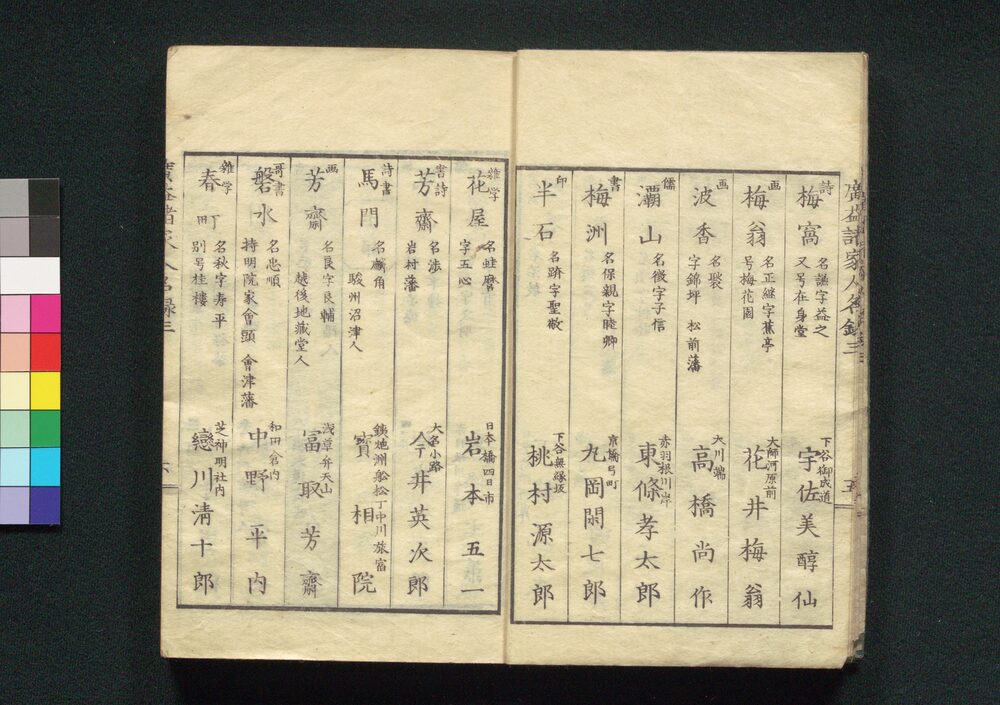 廣益諸家人名録三
五
詩 梅窩 名謙字益之 又号在身堂 下谷御成道 宇佐美醇仙
画 梅翁 名正継字蕉亭 号梅花園 大師河原前 花井梅翁
画 波香 名褧 字錦坪 松前藩 大川端 高橋尚作
儒 灞山 名徴字子信 赤羽根川岸 東條孝太郎
書 梅洲 名保親字睦卿 京橋弓町 九岡閑七郎
印 半石 名跡字聖徴 下谷無縁坂 桃村源太郎
雑学 花屋 名蛙麿 字五心 日本橋四日市 岩本五一
書詩 芳齋 名渉 岩村藩 大名小路 今井英次郎
詩書 馬門 名麟角 駿州沼津人 鉄炮洲舩松丁中川旅宿 寳相院
画 芳齋 名良字良輔 越後地藏堂人 浅草弁天山 冨取芳齋
哥書 磐水 名忠順 持明院家會頭 會津藩 和田倉内 中野平内
雑学 春町 名秋字寿平 別号桂樓 芝神明社内 戀川淸十郎
廣益諸家人名録三
六